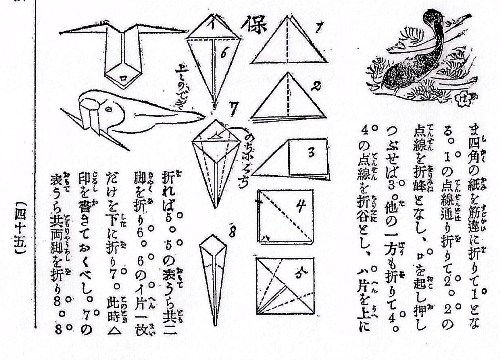 保
ま四角の紙を筋違に折りて1とな
る。1の点線通り折りて2。2の
点線を折峰となし、ロを起し押し
つぶせば3。他の一方も折りて4。
4の点線を折谷とし、ハ片を上に
折れば5。5の表うら共二
脚を折り6。6のイ片一枚
だけを下に折り7。此時△
印を書きておくべし。7の
表うら共両脚を折り8。8
1
2
3
4
5
6
7
8
(四十五)